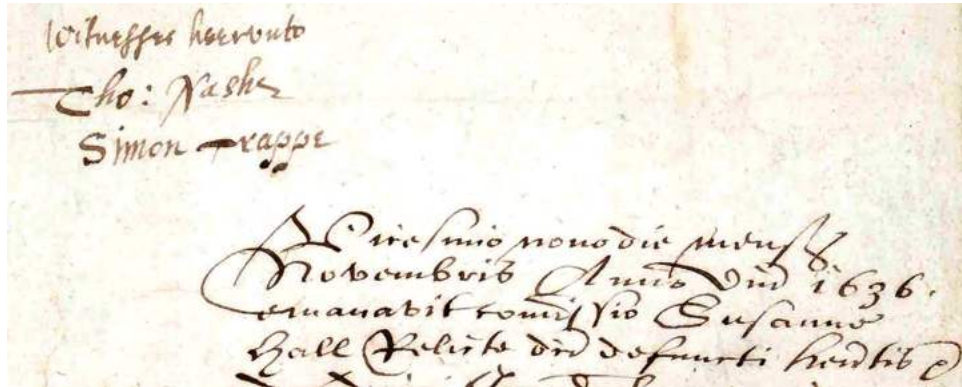 Witnesses heereunto
Tho: Nashe
Simon Trappe
Vicesimo nono die mensis
Novembris Anno dni 1636.
emanavit comissio Susanne
Hall Relicte dci defuncti hentis